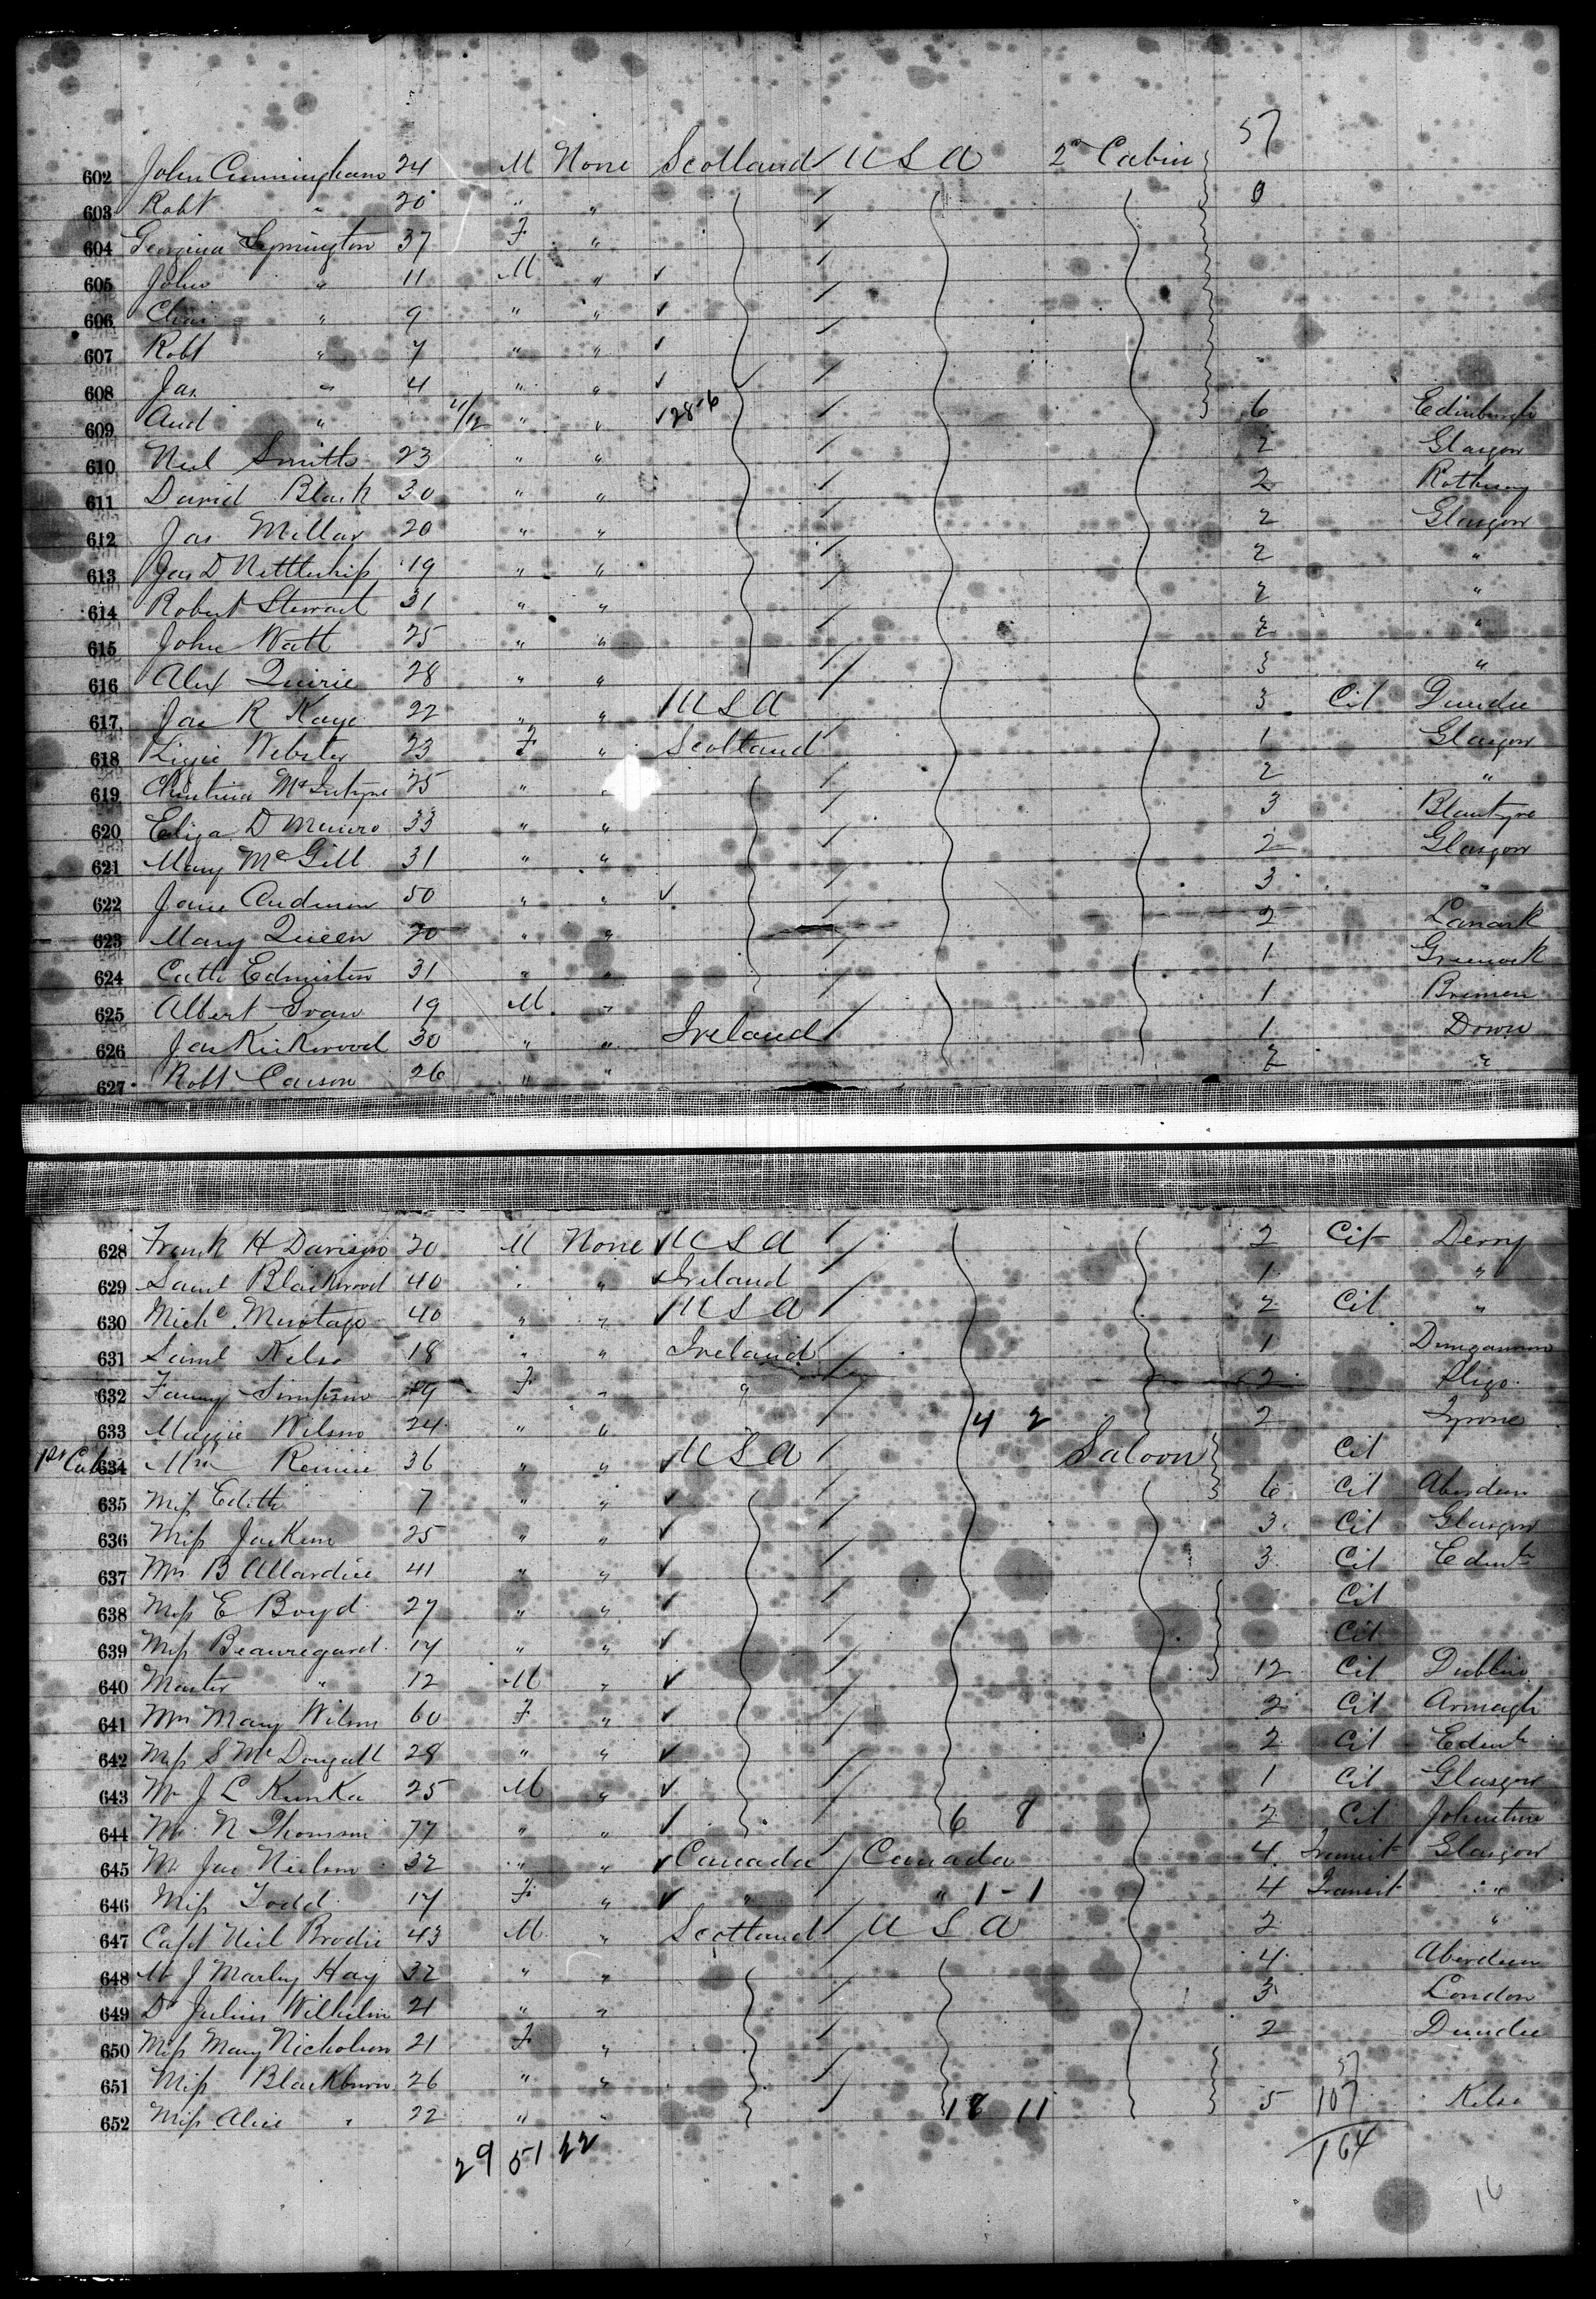 57
602 John Cunningham 24 M None Scotland / U S A 2ⁿ Cabin
603 Robt " 20 " "
604 Georgina Symington 37 F "
605 John " 11 M " ✓
606 Chas " 9 " " ✓
607 Robt " 7 " " ✓
608 Jas " 4 " " ✓
609 And " /12 " " ✓ 28-6 6 Edinburgh
610 Neil Smith 23 " " 2 Glasgow
611 David Black 30 " " 2 Rothesay
612 Jas Millar 20 " " 2 Glasgow
613 Jas D Nettleship 19 " " 2 "
614 Robert Stewart 31 " " 2 "
615 John Watt 25 " " 2 "
616 Alex Quirie 28 " " 3 "
617 Jas R Kaye 22 " " U S A 3 Cit Dundee
618 Lizzie Webster 23 F " Scotland 1 Glasgow
619 Christina McIntyre 25 " " 2 "
620 Eliza D Munro 33 " " 3 Blantyre
621 Mary McGill 31 " " 2 Glasgow
622 Jane Anderson 50 " " ✓ 3 "
623 Mary Queen 20 " " 2 Lanark
624 Cath Edmiston 31 " " 1 Greenock
625 Albert 19 M " 1 Bremen
626 Jas Kirkwood 30 " " Ireland 1 Down
627 Robt Carson 26 " " 2 "
628 Frank H Davison 20 M None ✓ U S A 2 Cit Derry
629 Saml Blackwood 40 " " ✓ Ireland 1 "
630 Michl 40 " " ✓ U S A 2 Cit "
631 Saml Kelso 18 " " Ireland 1 Dungannon
632 Fanny Simpson 19 F " " 2 Sligo
633 Maggie Wilson 24 " " 4 2 2 Tyrone
1st Cab 634 Mrs Rennie 36 " " ✓ U S A Saloon Cit
635 Miss Edith 7 " " ✓ 6 Cit Aberdeen
636 Miss 25 " " ✓ 3 Cit Glasgow
637 Mrs B Allardice 41 " " ✓ 3 Cit Edinh
638 Miss E Boyd 27 " " ✓ Cit
639 Miss Beauregard 17 " " ✓ Cit
640 Master " 12 M " ✓ 12 Cit Dublin
641 Mrs Mary Wilson 60 F " ✓ 2 Cit Armagh
642 Miss S McDougall 28 " " ✓ 2 Cit Edinh
643 Mr J L 25 M " ✓ 1 Cit Glasgow
644 Mr N Thomson 77 " " ✓ 6 8 2 Cit Johnstone
645 Mr Jas Neilson 32 " " ✓ Canada / Canada 4 Transit Glasgow
646 Miss Todd 17 F " ✓ " " 1-1 4 Transit "
647 Capt Neil Brodie 43 M " Scotland / U S A 2 "
648 Mr J Marley Hay 32 " " 4 Aberdeen
649 Dr Julius Wilhelm 21 " " 3 London
650 Miss Mary Nicholson 21 F " 2 Dundee
651 Miss Blackburn 26 " " 57
652 Miss Alice " 22 " " 18 11 5 107 Kelso
29 51 22 164
16